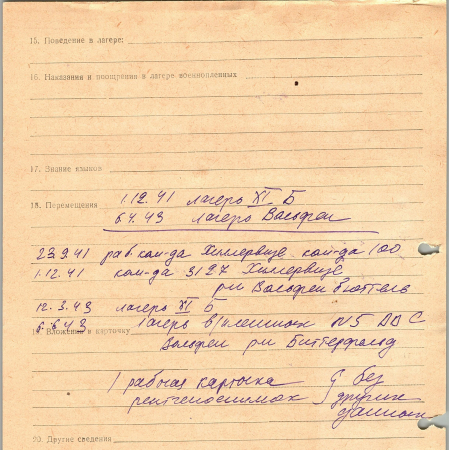 15. Поведение в лагере:
16. Наказания и поощрения в лагере военнопленных
17. Знание языков
18. Перемещения 1.12.41 лагерь XI Б
6.4.43 лагерь Вольфен
23.9.41 раб. ком-да Хиллервизе ком-да 100
1.12.41 ком-да 3127 Хиллервизе
р-н Вольфен
12.3.43 лагерь XI Б
6.6.43 лагерь в/пленных N5
Вложения в карточку Вольфен р-н Биттерфельд
1 рабочая карточка без
рентгеноснимок других
данных
20. Другие сведения